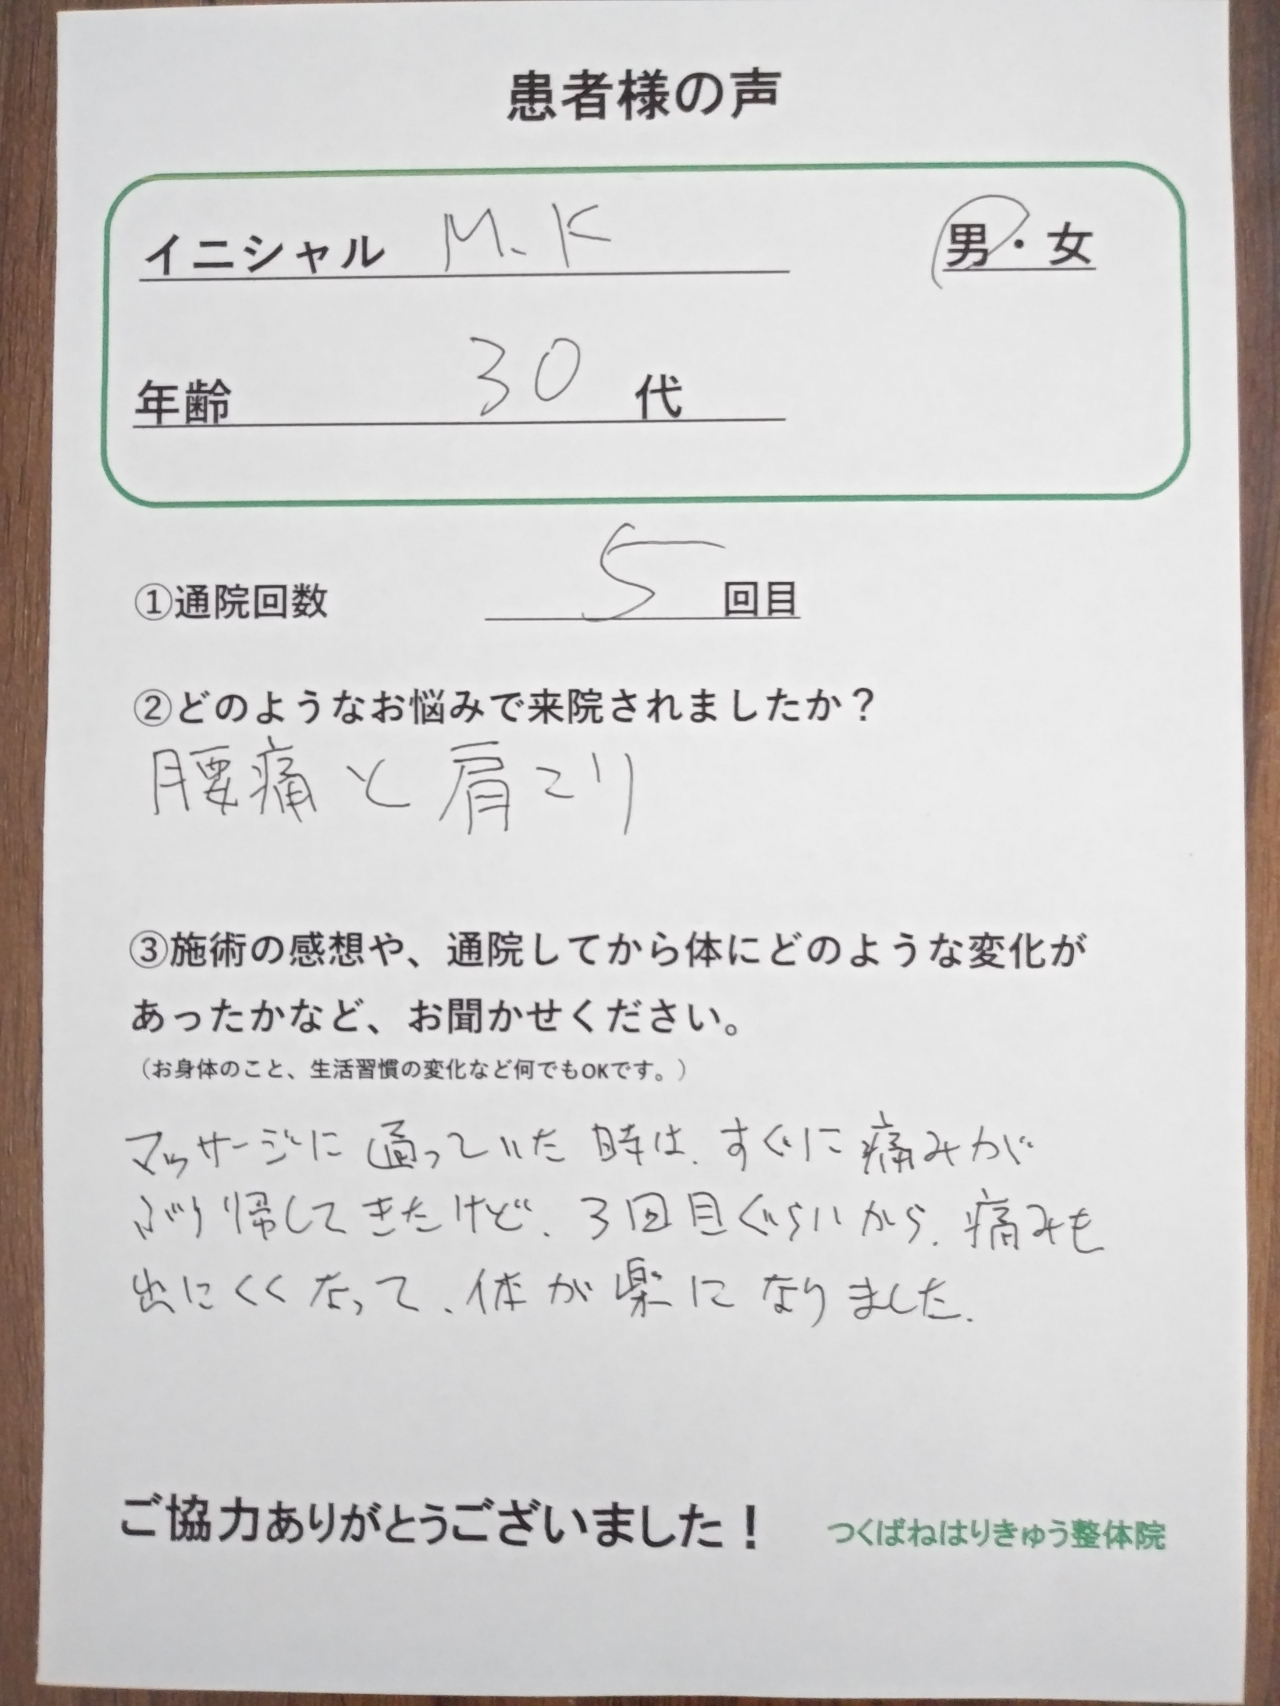 患者様の声
イニシャル M.K 男・女
年齢 30 代
①通院回数 5 回目
②どのようなお悩みで来院されましたか？
腰痛と肩こり
③施術の感想や、通院してから体にどのような変化が
あったかなど、お聞かせください。
（お身体のこと、生活習慣の変化など何でもOKです。）
マッサージに通っていた時は、すぐに痛みが
ぶり帰してきたけど、3回目ぐらいから、痛みも
出にくくなって、体が楽になりました。
ご協力ありがとうございました！ つくばねはりきゅう整体院